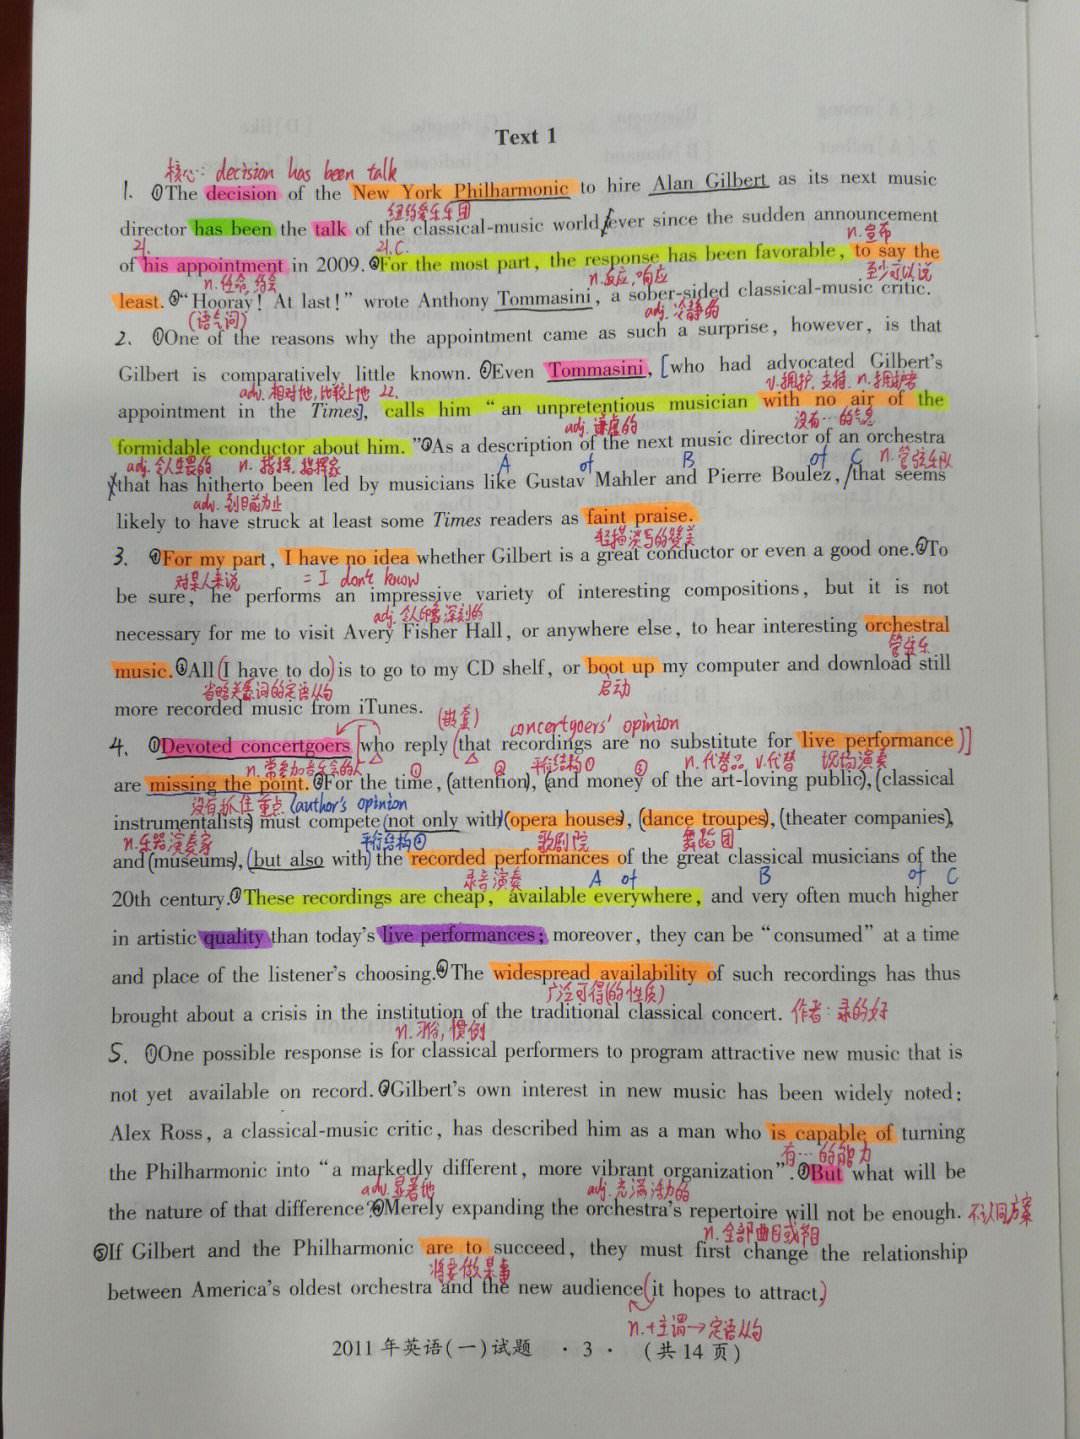 Text 1
核心: decision has been talk
1. ①The decision of the New York Philharmonic to hire Alan Gilbert as its next music
纽约爱乐乐团
director has been the talk of the classical-music world, ever since the sudden announcement
21. 21.C. n.宣布
of his appointment in 2009. ②For the most part, the response has been favorable, to say the
n.任命, 约会 n.反应,响应 至少可以说
least. ③“Hooray! At last!” wrote Anthony Tommasini, a sober-sided classical-music critic.
(语气词) adj.冷静的
2. ①One of the reasons why the appointment came as such a surprise, however, is that
Gilbert is comparatively little known. ②Even Tommasini, [who had advocated Gilbert’s
adv.相对地,比较上地 22. v.拥护,支持. n.拥护者
appointment in the Times], calls him “an unpretentious musician with no air of the
adj.谦虚的 没有…的气息
formidable conductor about him.” ③As a description of the next music director of an orchestra
adj.令人生畏的 n.指挥,指挥家 A of B of C n.管弦乐队
that has hitherto been led by musicians like Gustav Mahler and Pierre Boulez, that seems
adv.到目前为止
likely to have struck at least some Times readers as faint praise.
轻描淡写的赞美
3. ①For my part, I have no idea whether Gilbert is a great conductor or even a good one. ②To
对某人来说 = I don't know
be sure, he performs an impressive variety of interesting compositions, but it is not
adj.令人印象深刻的
necessary for me to visit Avery Fisher Hall, or anywhere else, to hear interesting orchestral
管弦乐
music. ③All (I have to do) is to go to my CD shelf, or boot up my computer and download still
省略关系词的定语从句 启动
more recorded music from iTunes.
(嵌套) concertgoers' opinion
4. ①Devoted concertgoers [who reply (that recordings are no substitute for live performance)]
n.常参加音乐会的人 ① ② 平行结构① ③ n.代替品 v.代替 现场演奏
are missing the point. ②For the time, (attention), (and money of the art-loving public), (classical
没有抓住重点 (author's opinion
instrumentalists) must compete (not only with) (opera houses), (dance troupes), (theater companies),
n.乐器演奏家 平行结构② 歌剧院 舞蹈团
and (museums), (but also with) the recorded performances of the great classical musicians of the
录音演奏 A of B of C
20th century. ③These recordings are cheap, available everywhere, and very often much higher
in artistic quality than today’s live performances; moreover, they can be “consumed” at a time
and place of the listener’s choosing. ④The widespread availability of such recordings has thus
广泛可得(的性质)
brought about a crisis in the institution of the traditional classical concert. 作者: 录的好
n.习俗,惯例
5. ①One possible response is for classical performers to program attractive new music that is
not yet available on record. ②Gilbert’s own interest in new music has been widely noted:
Alex Ross, a classical-music critic, has described him as a man who is capable of turning
有…的能力
the Philharmonic into “a markedly different, more vibrant organization”. ③But what will be
adv.显著地 adj.充满活力的
the nature of that difference? ④Merely expanding the orchestra’s repertoire will not be enough. 不认同方案
n.全部曲目或节目
⑤If Gilbert and the Philharmonic are to succeed, they must first change the relationship
将要做某事
between America’s oldest orchestra and the new audience (it hopes to attract.)
n.+主谓→定语从句
2011 年英语(一)试题 · 3 · (共 14 页)